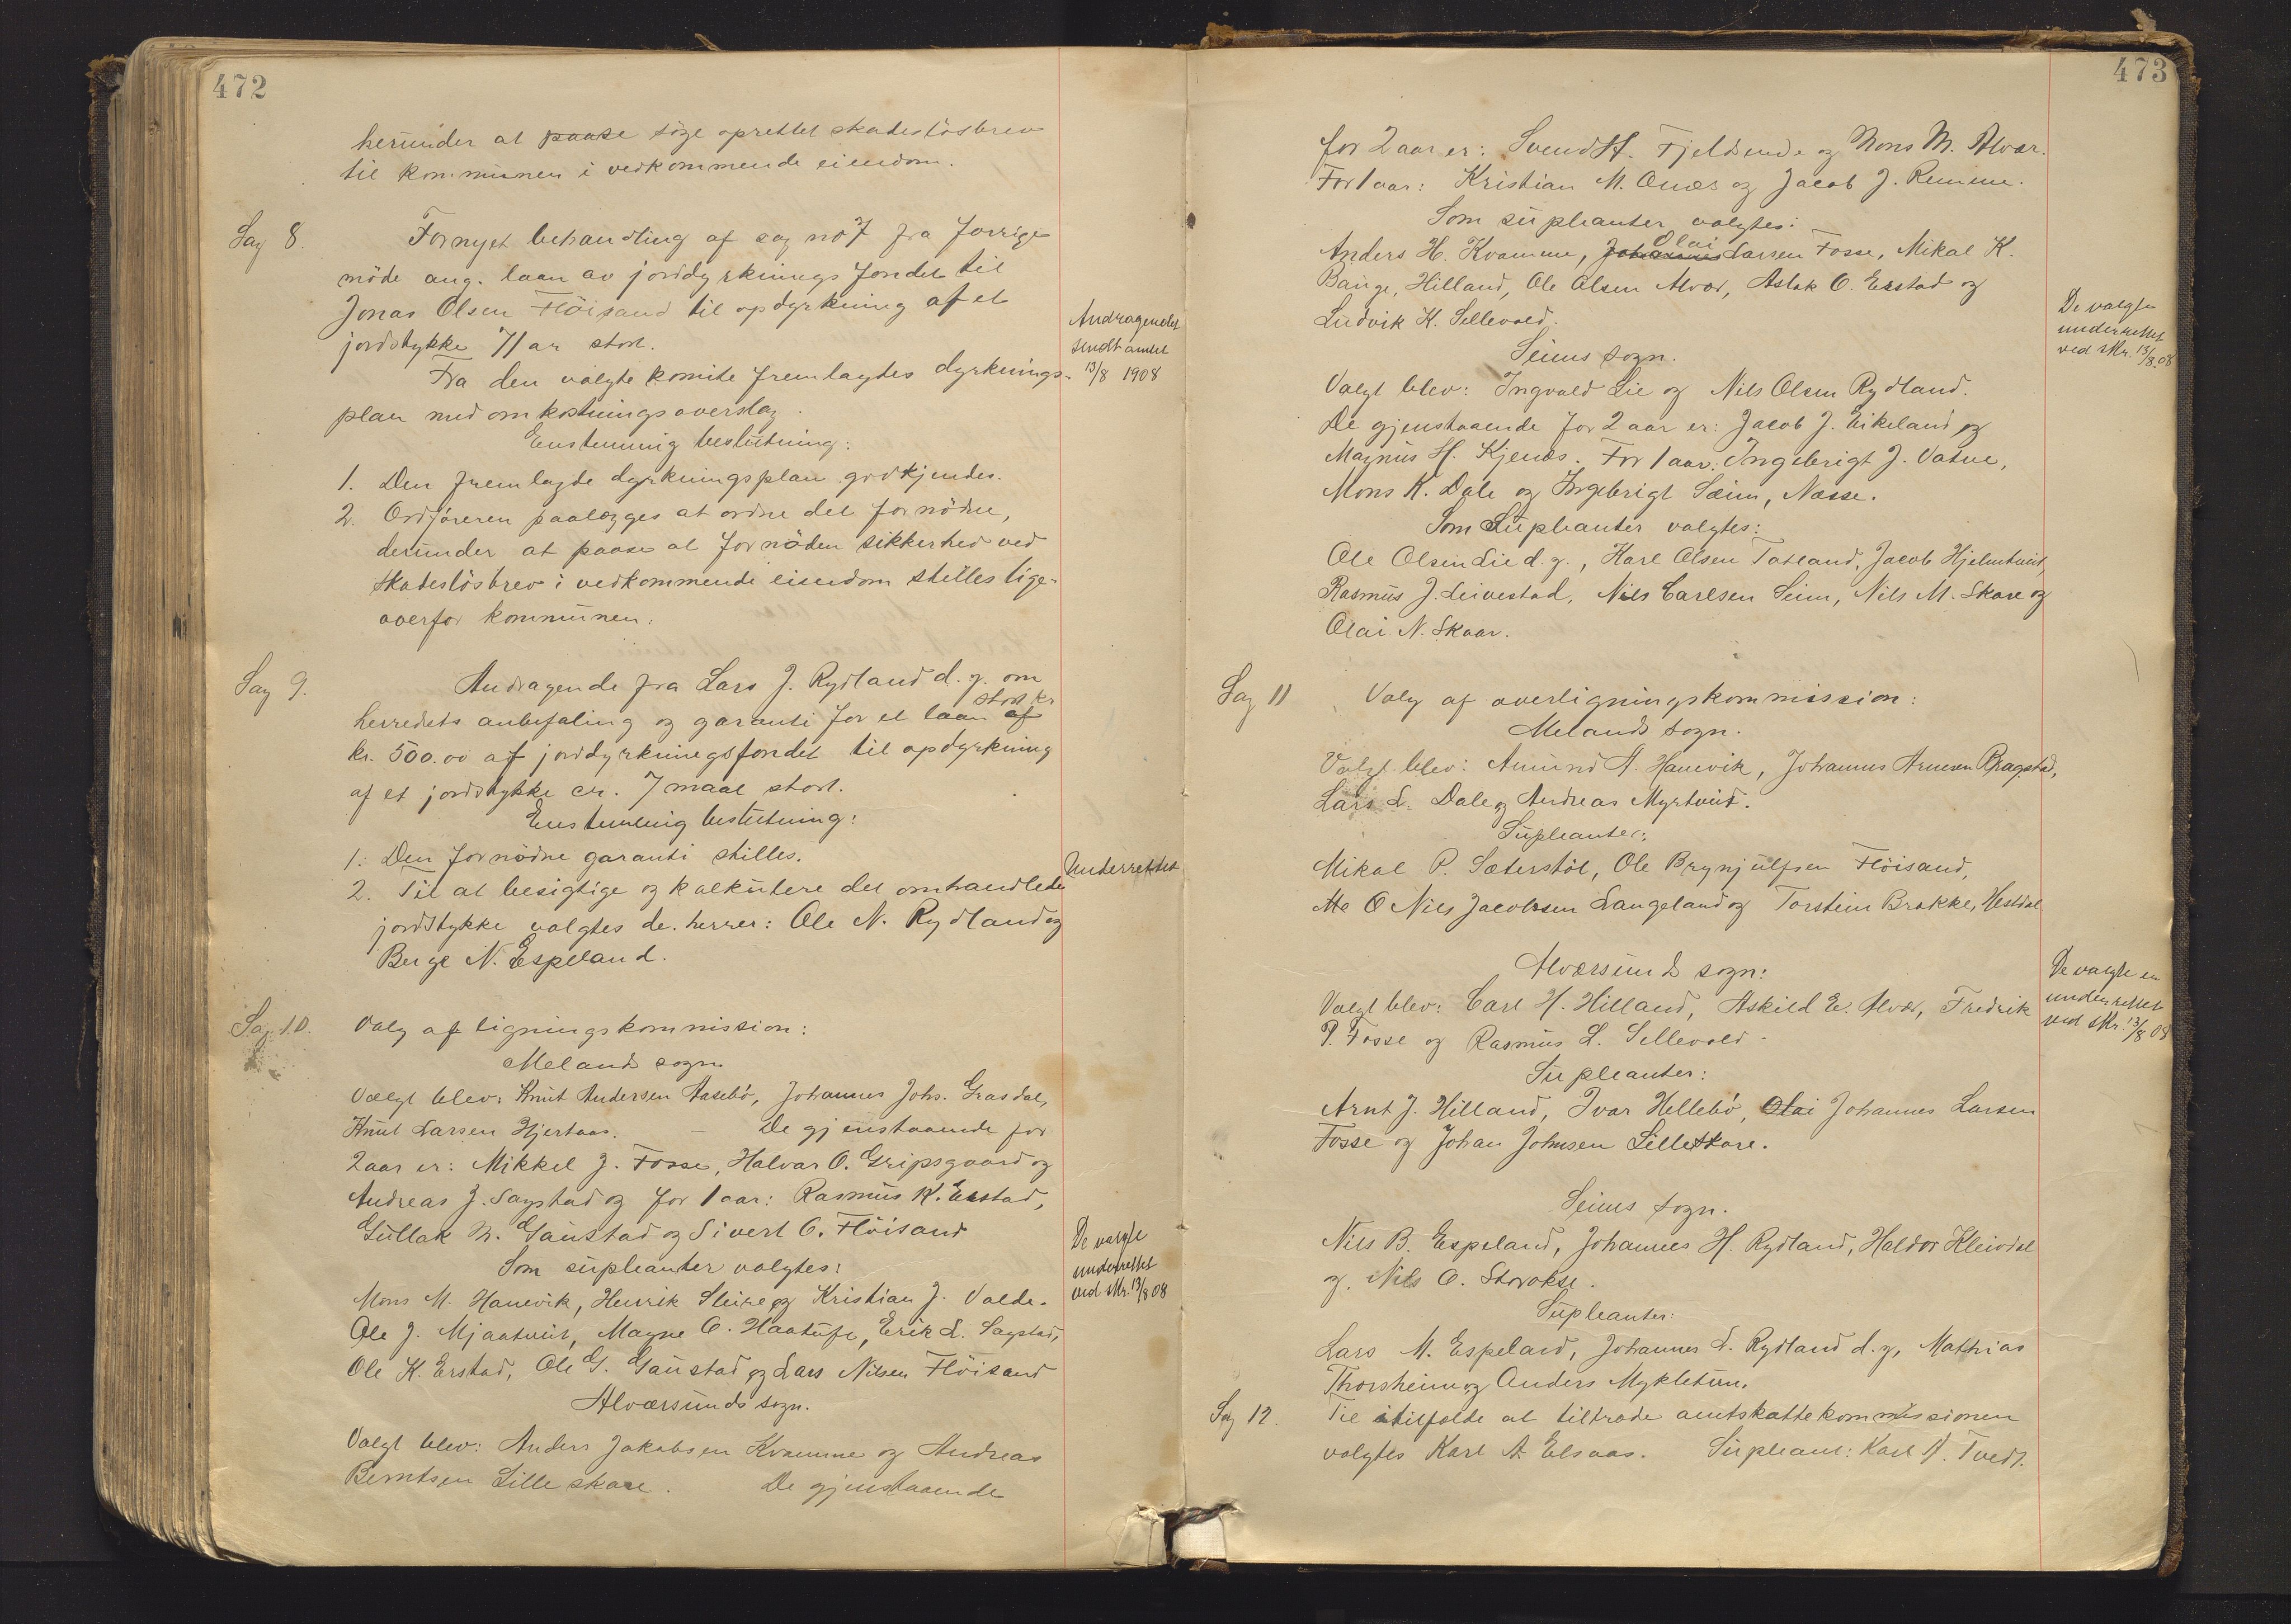 472
herunder at paase søge oprettet skadesløsbrev
til kommunen i vedkommende eiendom.
Sag 8.
Fornyet behandling af sag no 7 fra forrige
møde ang. laan av jorddyrknings fondet til
Jonas Olsen Fløisand til opdyrkning af et
jordstykke 7/ ar stort.
Andragendet
sendt amtet
13/8 1908
Fra den valgte komite fremlagtes dyrknings-
plan med omkostningsoverslag.
Enstemmig beslutning:
1. Den fremlagde dyrkningsplan godkjendes.
2. Ordføreren paalægges at ordne det fornødne,
derunder at paase at fornøden sikkerhed ved
skadesløsbrev i vedkommende eiendom stilles lige-
overfor kommunen.
Sag 9.
Andragende fra Lars J. Rydland d. y. om
herredets anbefaling og garanti for et laan af stort kr
kr. 500.00 af jorddyrkningsfondet til opdyrkning
af et jordstykke cr. 7 maal stort.
Enstemmig beslutning:
1. Den fornødne garanti stilles.
Underrettet
2. Til at besigtige og kalkulere det omhandlede
jordstykke valgtes de herrer: Ole N. Rydland og
Berge N. Espeland.
Sag 10.
Valg af ligningskommission:
Melands sogn
Valgt blev: Knut Andersen Aasebø, Johannes Johs. Grasdal,
Knut Larsen Hjertaas. — De gjenstaaende for
2 aar er: Mikkel J. Fosse, Halvar O. Gripsgaard og
Andreas J. Sagstad og for 1 aar: Rasmus K. Erstad,
Gullak N. Gaustad og Sivert O. Fløisand
Som supleanter valgtes:
De valgte
underrettet
ved skr. 13/8 08
Mons M. Hanevik, Henrik Sleire og Kristian J. Valde.
Ole J. Mjaatveit, Magne O. Haatuft, Erik L. Sagstad,
Ole K. Erstad, Ole G. Gaustad og Lars Nilsen Fløisand
Alværsunds sogn.
Valgt blev: Anders Jakobsen Kvamme og Andreas
Berntsen Lilleskare. De gjenstaaende
473
for 2 aar er: Svend H. Fjeldsende og Mons M. Alvær.
For 1 aar: Kristian M. Onæs og Jacob J. Remme.
Som supleanter valgtes:
Anders H. Kvamme, Johannes Olai Larsen Fosse, Mikal K.
Bauge, Hilland, Ole Olsen Alvær, Aslak O. Erstad og
Ludvik K. Sellevold.
De valgte
underrettet
ved skr. 13/8.08
Seims sogn.
Valgt blev: Ingvald Lie og Nils Olsen Rydland.
De gjenstaaende for 2 aar er: Jacob J. Eikeland og
Magnus H. Kjenæs. For 1 aar: Ingebrigt J. Vatne,
Mons K. Dale og Ingebrigt Sæim, Næsse.
Som Supleanter valgtes:
Ole Olsen Lie d. y., Karl Olsen Tatland, Jacob Hjelmtveit,
Rasmus J. Leivestad, Nils Carlsen Seim, Nils M. Skare og
Olai N. Skaar.
Sag 11
Valg af overligningskommission:
Melands sogn.
Valgt blev: Amund A. Hanevik, Johannes Arnesen Ryagstad,
Lars L. Dale og Andreas Myrtveit.
Supleanter:
Mikal P. Sæterstøl, Ole Brynjulfsen Fløisand,
Me O Nils Jacobsen Langeland og Torstein Brakke, Hestdal
Alværsunds sogn:
Valgt blev: Carl H. Hilland, Askild E. Alvær, Fredrik
P. Fosse og Rasmus L. Sellevold.
De valgte er
underrettet
ved skr. 13/8 08
Supleanter:
Arnt J. Hilland, Ivar Hellebø, Olai Johannes Larsen
Fosse og Johan Johnsen Lilleskare.
Seims sogn.
Nils B. Espeland, Johannes H. Rydland, Haldor Kleivdal
og Nils O. Storakse.
Supleanter:
Lars M. Espeland, Johannes L. Rydland d. y, Mathias
Thorsheim og Anders Mykletun.
Sag 12.
Til i tilfælde at tiltræde amtskattekommissionen
valgtes Karl A. Elsaas. Supleant: Karl A. Tvedt.